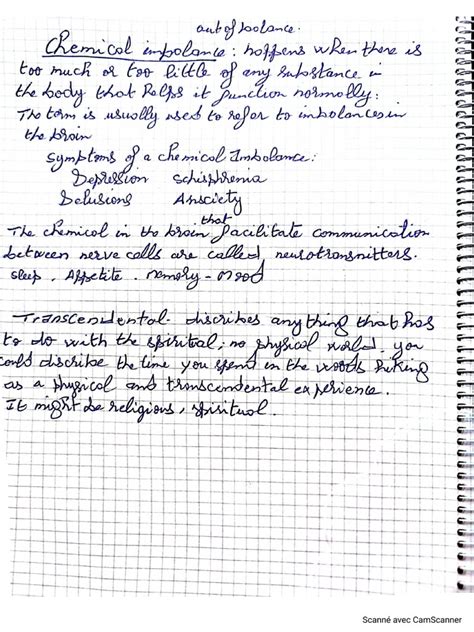 out of balance.
Chemical imbalance: happens when there is
too much or too little of any substance in
the body that helps it function normally.
The term is usually used to refer to imbalances in
the brain
Symptoms of a chemical Imbalance:
Depression schisphrenia
Delusions Anxciety
that
The chemical in the brain facilitate communication
between nerve cells are called, neurotransmitters.
sleep. Appetite. memory - mood
Transcendental. discribes anything that has
to do with the spiritual, no physical world. you
could discribe the time you spend in the woods hiking
as a physical and transcendental experience.
It might be religious, spiritual.
Scanné avec CamScanner